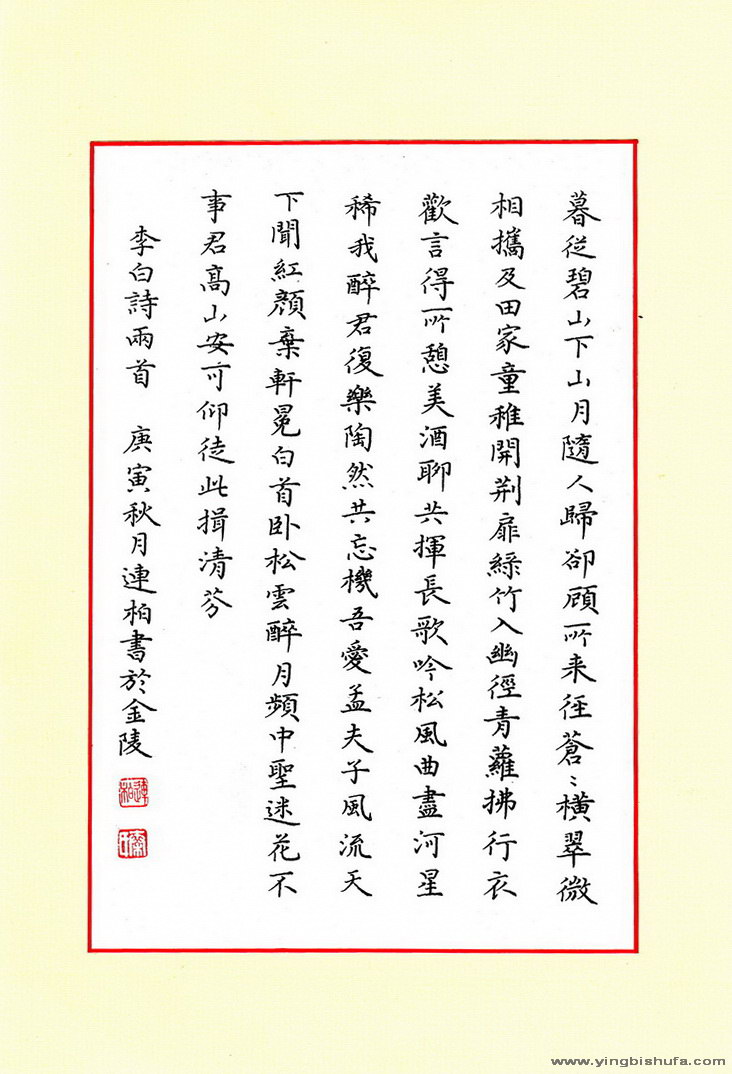 暮従碧山下山月隨人歸卻顧所来徑蒼〻橫翠微
相攜及田家童稚開荆扉綠竹入幽徑青蘿拂行衣
歡言得所憩美酒聊共揮長歌吟松風曲盡河星
稀我醉君復樂陶然共忘機吾愛孟夫子風流天
下聞紅顏棄軒冕白首卧松雲醉月頻中聖迷花不
事君高山安可仰徒此揖清芬
李白詩兩首 庚寅秋月連柏書於金陵
連柏
www.yingbishufa.com